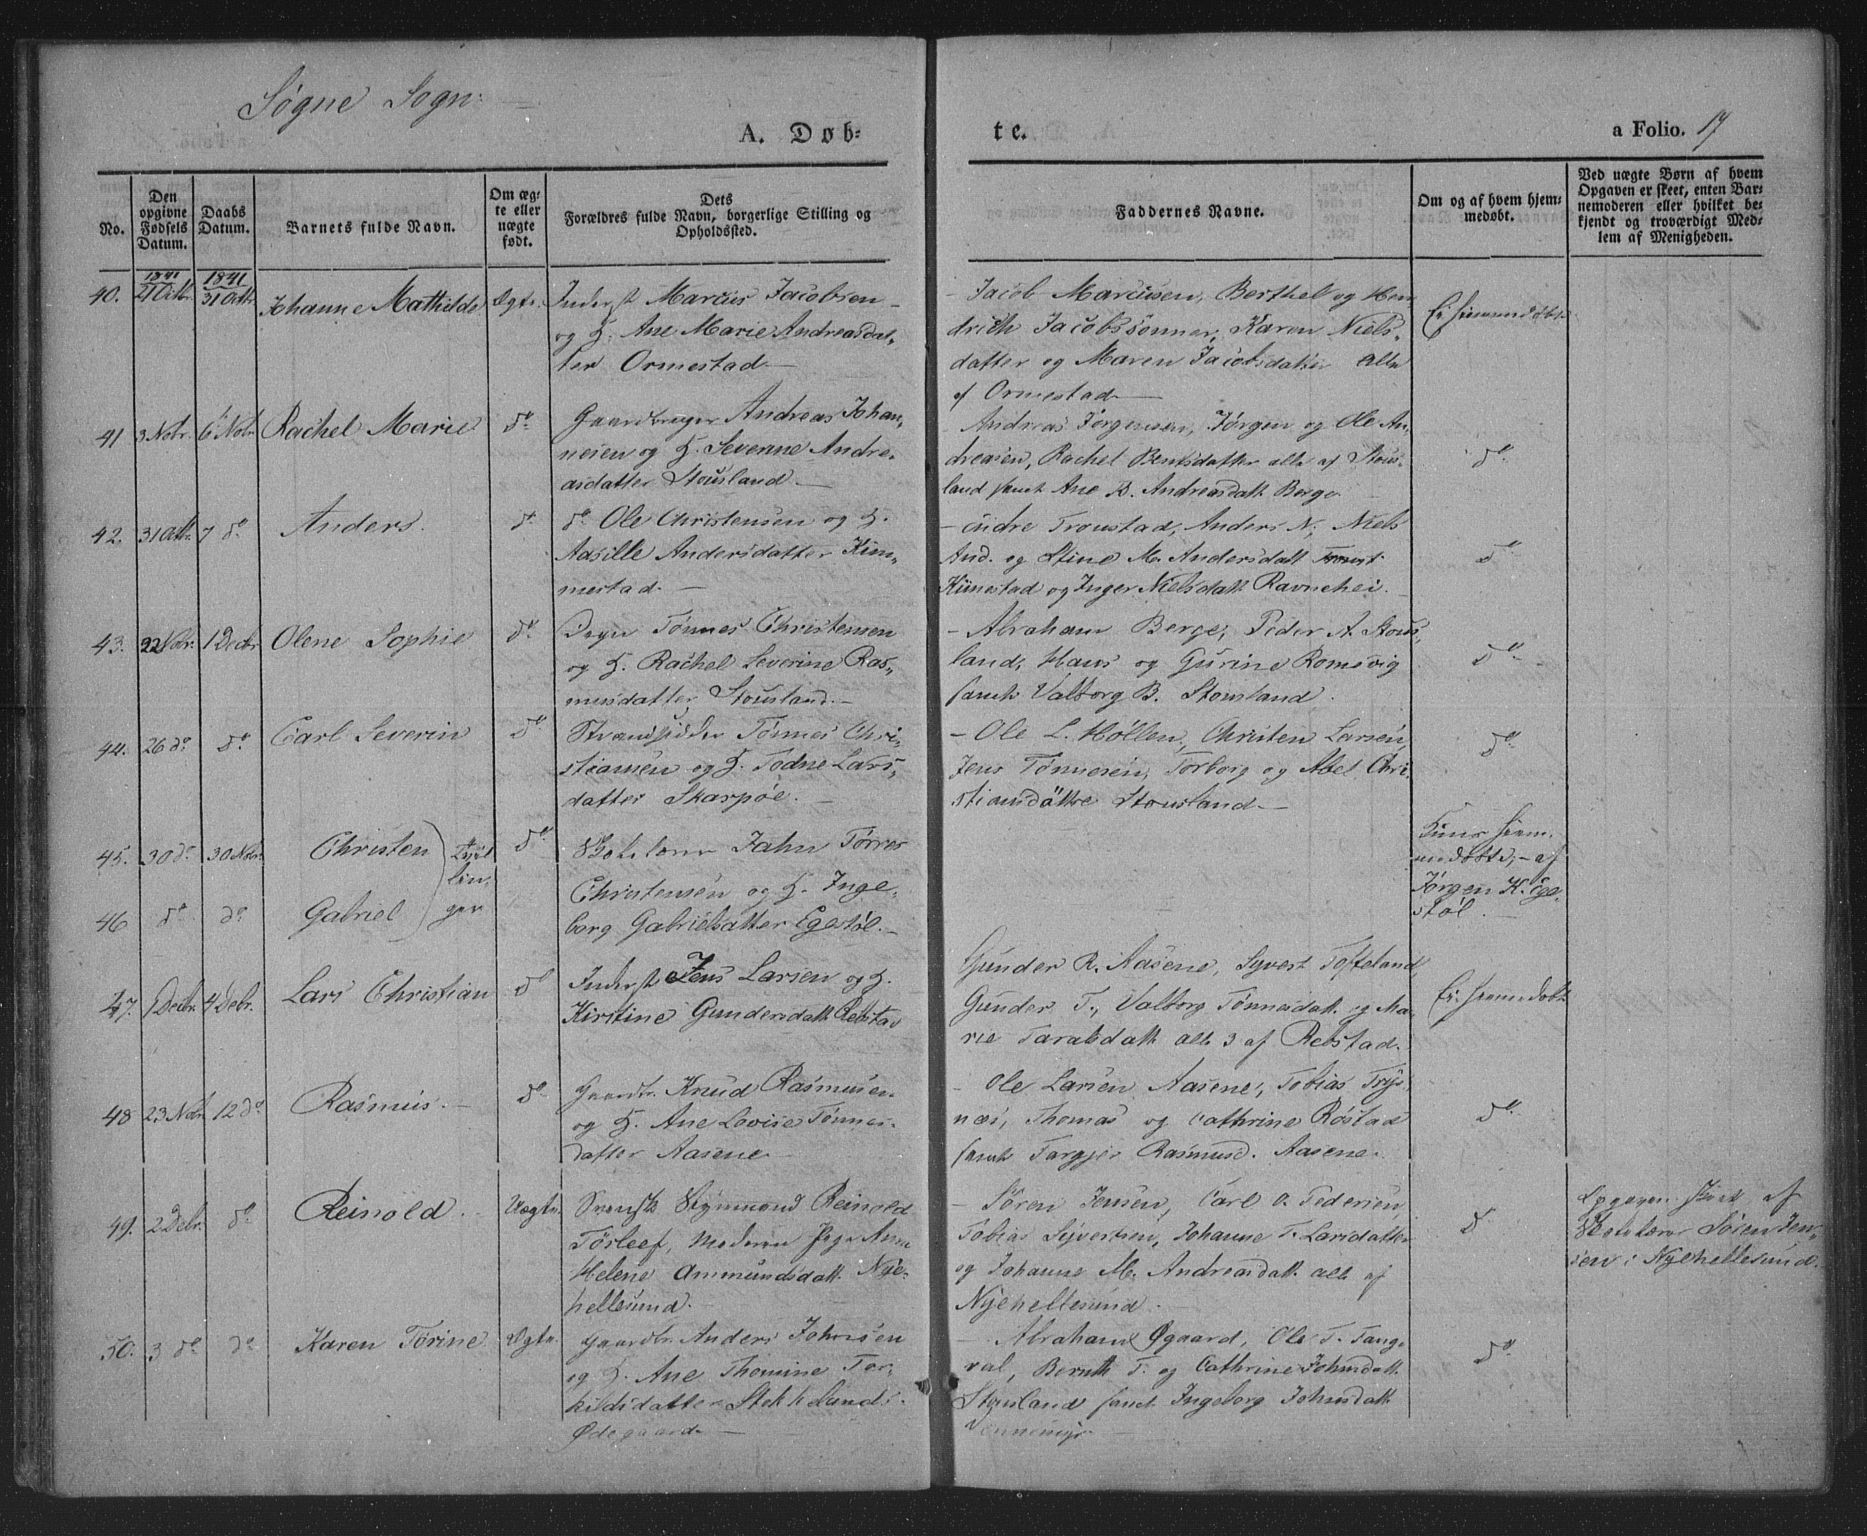 Søgne Sogn.
A. Døb-
te.
a Folio. 17
No.
Den opgivne Fødsels Datum.
Daabs Datum.
Barnets fulde Navn.
Om ægte eller nægte født.
Dets Forældres fulde Navn, borgerlige Stilling og Opholdssted.
Faddernes Navne.
Om og af hvem hjemmedøbt.
Ved uægte Børn af hvem Opgaven er skeet, enten Barnemoderen eller hvilket bekjendt og troværdigt Medlem af Menigheden.
1841 1841
40. 21 Octbr. 31 Octbr. Johanne Mathilde Ægte. Inderst Marcus Jacobsen
og H. Ane Marie Andreasdat-
ter Ormestad
Jacob Marcusen, Berthel og Hen
drich Jacobssønner, Karen Niels-
datter og Maren Jacobsdatter alle
af Ormestad
Ei hjemmedøbt
41 3 Nobr. 6 Nobr. Rachel Marie do Gaardbruger Andreas Johan-
nesen og H. Severine Andre-
asdatter Stousland
Andreas Jørgensen, Jørgen og Ole An-
dreasen, Rachel Bentsdatter alle af Stous-
land samt Ane B. Andreasdatt Berge
do
42. 31 Octbr. 7 do Anders. do do Ole Christensen og H.
Aasille Andersdatter Kim-
mestad.
Tronstad, Anders N, Niels
And. og Stine M. Andersdatt
Kimestad og Inger Nielsdatt Ravnehei.
do
43. 22 Nobr. 1 Decbr Olene Sophie do Tønnes Christensen
og H. Rachel Severine Ras-
musdatter Stousland.
Abraham Berge, Peder A. Stous-
land, Hans og Gurine Romsvig
samt Valborg B. Stousland.
do
44. 26 do do Carl Severin do Strandsidder Tønnes Chri-
stiansen og H. Todne Lars-
datter Skarpøe.
Ole L. Høllen, Christen Larsen
Jens Tønnesen, Torborg og Abel Chri
stiansdøttre Stousland
do
45. 30 do 30 Nobr. Christen Tvil
lin-
ger
do John Tørres
Christensen og H. Inge-
borg Gabrielsatter Egestøl.
Kuns hjem-
medøbte, af
Jørgen K. Ege-
støl.
46 do do Gabriel
47. 1 Decbr. 4 Debr. Lars Christian do Inderst Jens Larsen og H.
Kirstine Gundersdatt Rebstad
Gunder R. Aasene, Syvert Tofteland
Gunder T., Valborg Tønnesdatt og Ma-
rie Taraldsdatt alle 3 af Rebstad.
Ei hjemmedøbt
48 23 Nobr 12 do Rasmus. do Gaardbr. Knud Rasmusen
og H. Ane Lovise Tønnes-
datter Aasene
Ole Larsen Aasene, Tobias Trys-
næs, Thomas og Cathrine Røstad
samt Targjer Rasmusd. Aasene.
do
49. 2 Debr. do Reinold. Uægte. Svensk Reinold
Törleef, Moderen Pige Anne
Helene Ammundsdatt. Nye-
hellesund.
Søren Jensen, Carl O. Pedersen
Tobias Syvertsen, Johanne T. Larsdatter
og Johanne M. Andreasdatt alle af
Nyehellesund.
do
Opgaven skeet af
Søren Jen-
sen i Nyehellesund.
50. 3 do do Karen Torine Ægte. Gaardbr. Anders Johnsen
og H. Ane Thomine Tor-
kildsdatter Stokkelands
Ødegaard
Abraham Øgaard, Ole T. Tange-
val, Bernth T. og Cathrine Johnsdatt
Stousland samt Ingeborg Johnsdatt
do